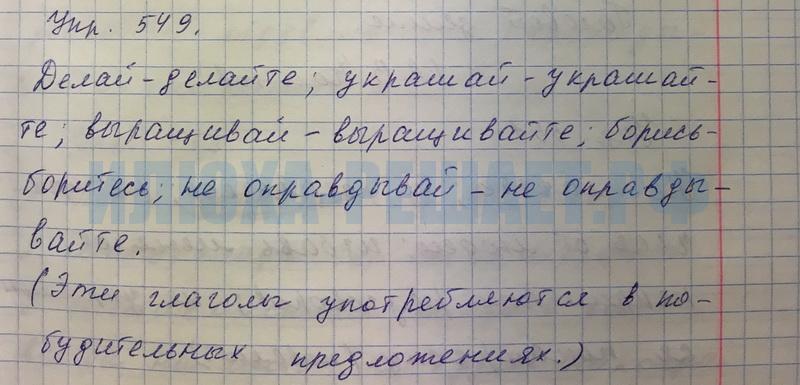 Упр. 549.
Делай-делайте; украшай-украшай-
те; выращивай-выращивайте; борись-
боритесь; не оправдывай - не оправды-
вайте.
(Эти глаголы употребляются в по-
будительных предложениях.)
ИЛЮХА-РЕШАЕТ.РФ